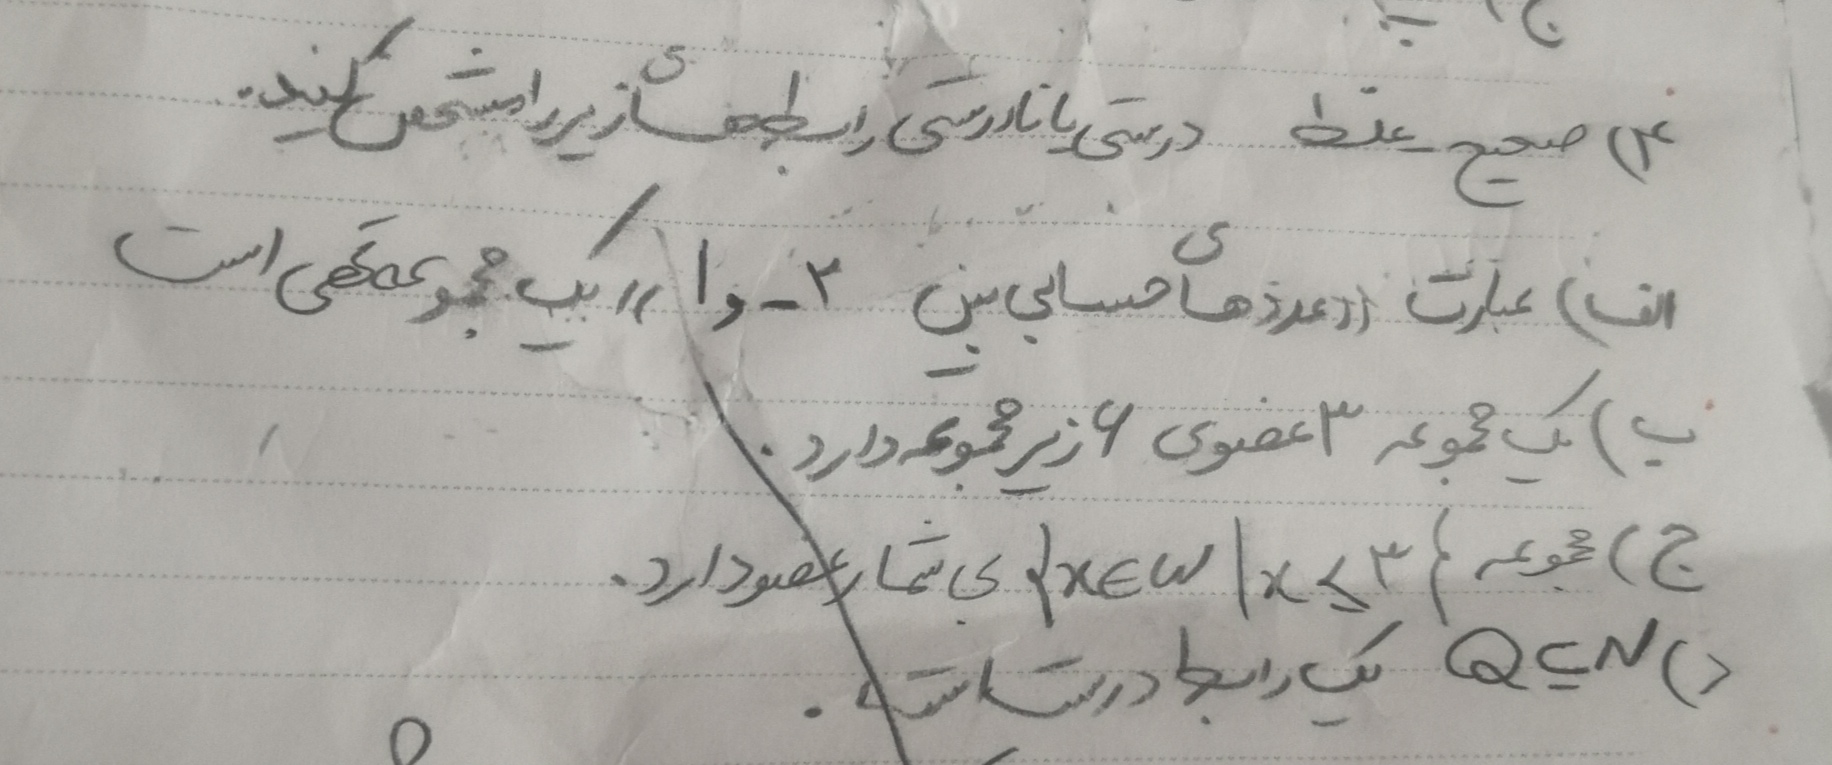 ۴) صحیح - غلط درستی یا نادرستی رابطه های زیر را مشخص کنید.
الف) عبارت ((عددهای حسابی بین ۲- و ۱)) یک مجموعه تهی است
ب) یک مجموعه ۳ عضوی ۶ زیر مجموعه دارد.
ج) مجموعه {x∈W | x ≤ ۳} بی شمار عضو دارد.
د) Q ⊆ N یک رابطه درست است.